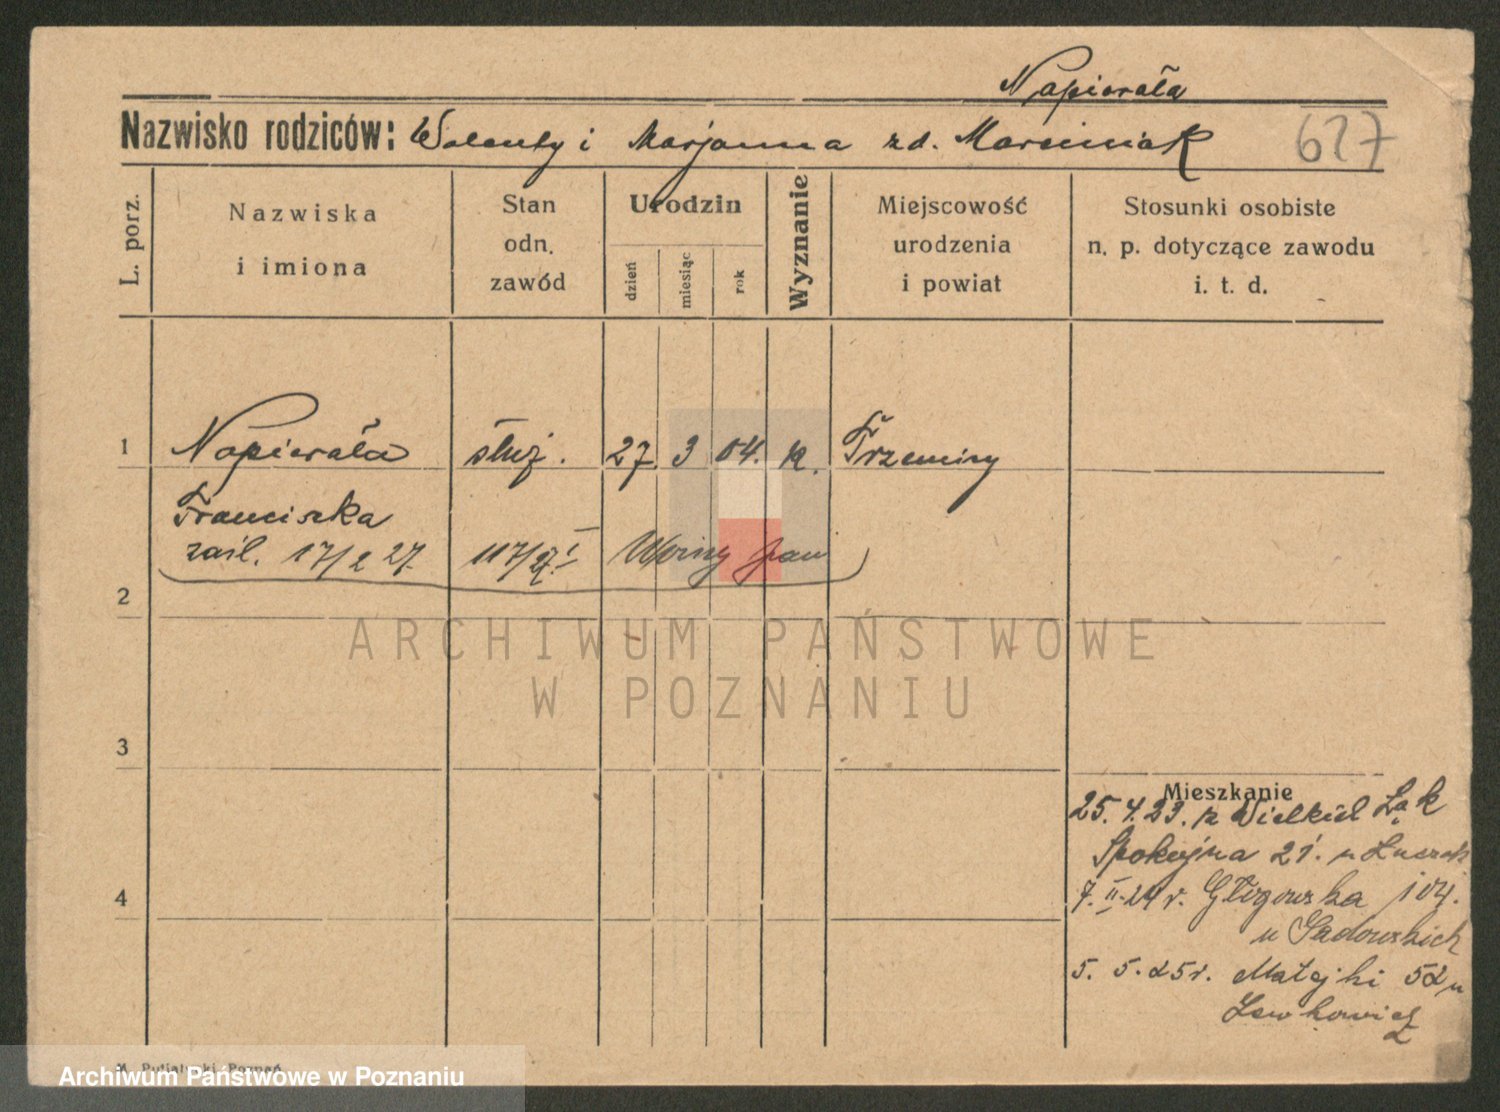 Napierała
Nazwisko rodziców: Walenty i Marjanna zd. Marciniak
627
L. porz.
Nazwiska
i imiona
Stan
odn.
zawód
Urodzin
dzień
miesiąc
rok
Wyznanie
Miejscowość
urodzenia
i powiat
Stosunki osobiste
n. p. dotyczące zawodu
i. t. d.
1 Napierała służ. 27. 3 04. k.
Franciszka
zaśl. 17/2 27. 117/27.I
2
ARCHIWUM PAŃSTWOWE
W POZNANIU
3
Mieszkanie
25.4.23. z Wielkich Łąk
Spokojna 21. u
4
7.II.24 r. Głogowska 104.
u Sadowskich
5. 5. 25 r. Matejki 52 u
Poznań
Archiwum Państwowe w Poznaniu